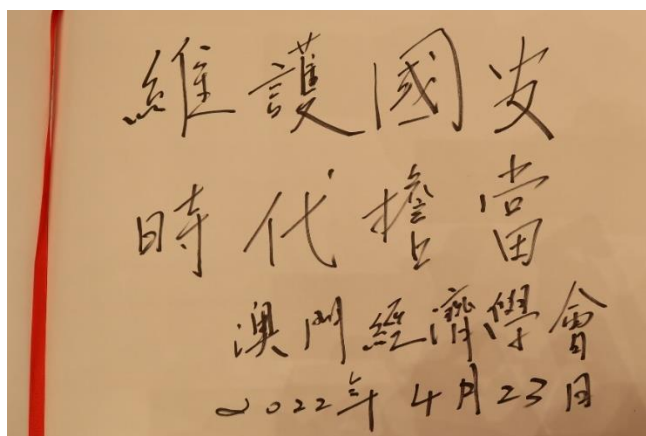 維護國安
時代擔當
澳門經濟學會
2022年4月23日